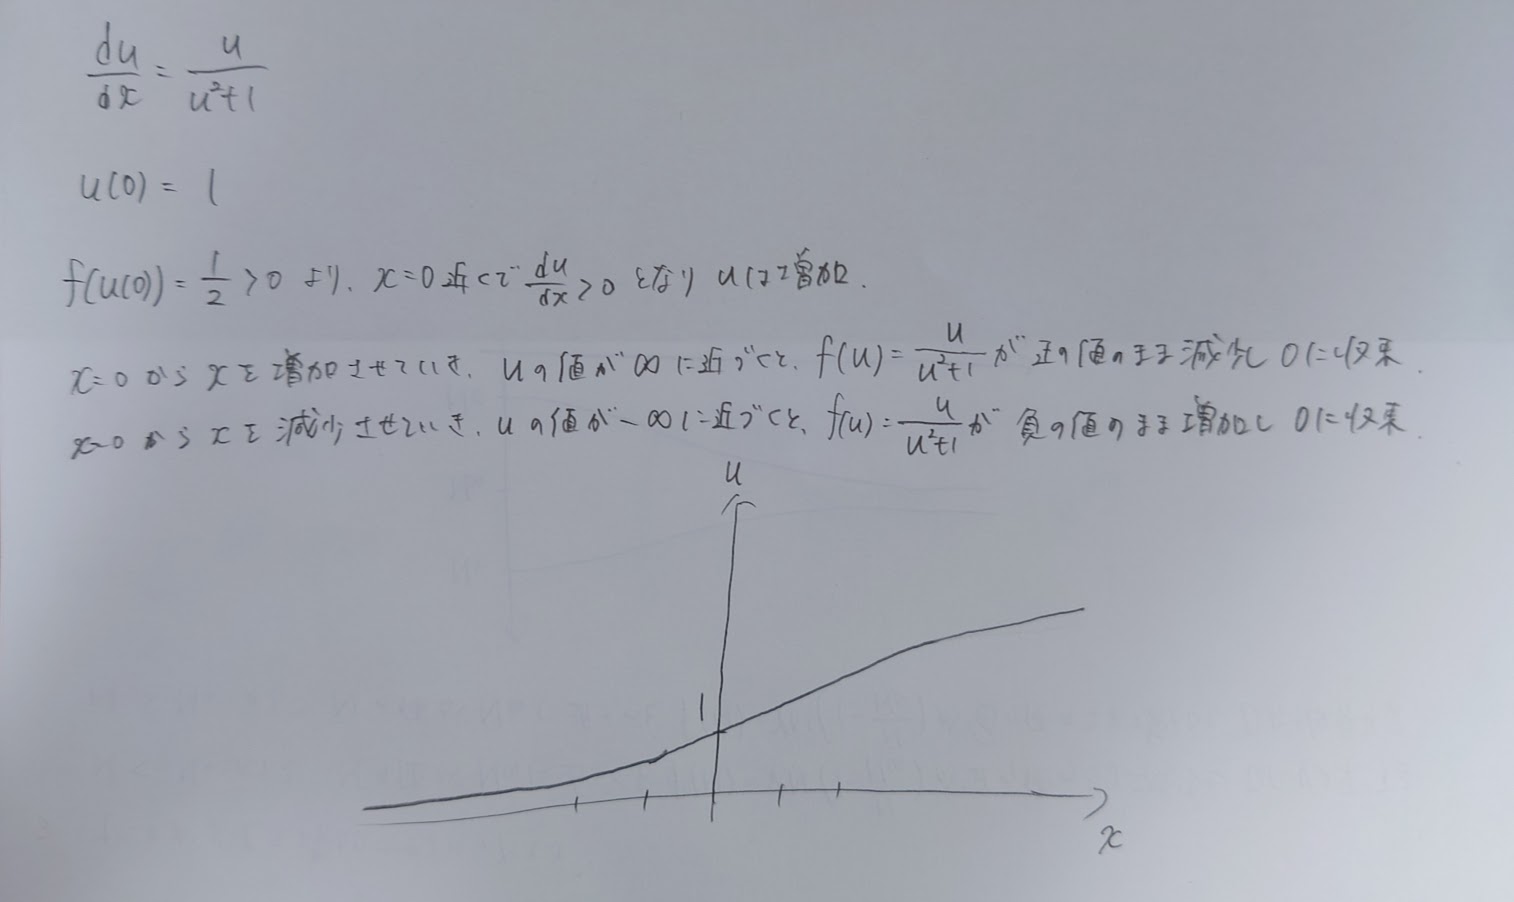 du/dx = u/(u²+1)
u(0) = 1
f(u(0)) = 1/2 > 0 より、x=0 近くで du/dx > 0 となり uは増加.
x=0 から xを増加させていき、uの値が∞に近づくと、f(u) = u/(u²+1) が正の値のまま減少し 0に収束.
x=0 から xを減少させていき、uの値が-∞に近づくと、f(u) = u/(u²+1) が負の値のまま増加し 0に収束.
u
1
x